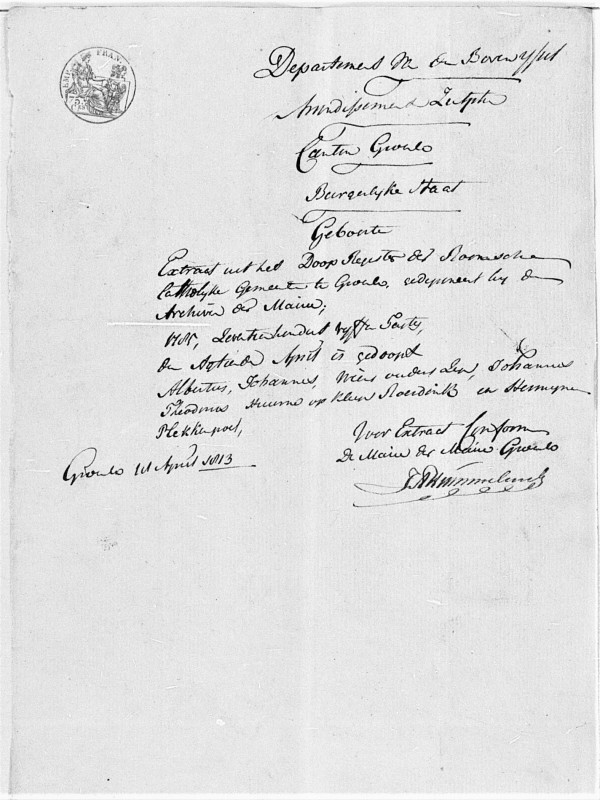 EMPIRE FRANÇAIS
Departement van den Bovenyssel
Arrondissement Zutphen
Canton Groenlo
Burgerlyke Staat
Geboorte
Extract uit het Doop Register der Roomsche
Catholyke Gemeente te Groenlo, gedeponeert by de
Archiven der Mairie;
1785, Zeventienhondert vyf en Tagtig,
den Agtiende April is gedoopt
Albertus, Johannes, wiens ouders zyn, Johannes
Theodorus Huurne op klein Roerdink en Hermyne
Plekkenpoel,
Voor Extract Conform
De Maire der Mairie Groenlo
Groenlo April 1813